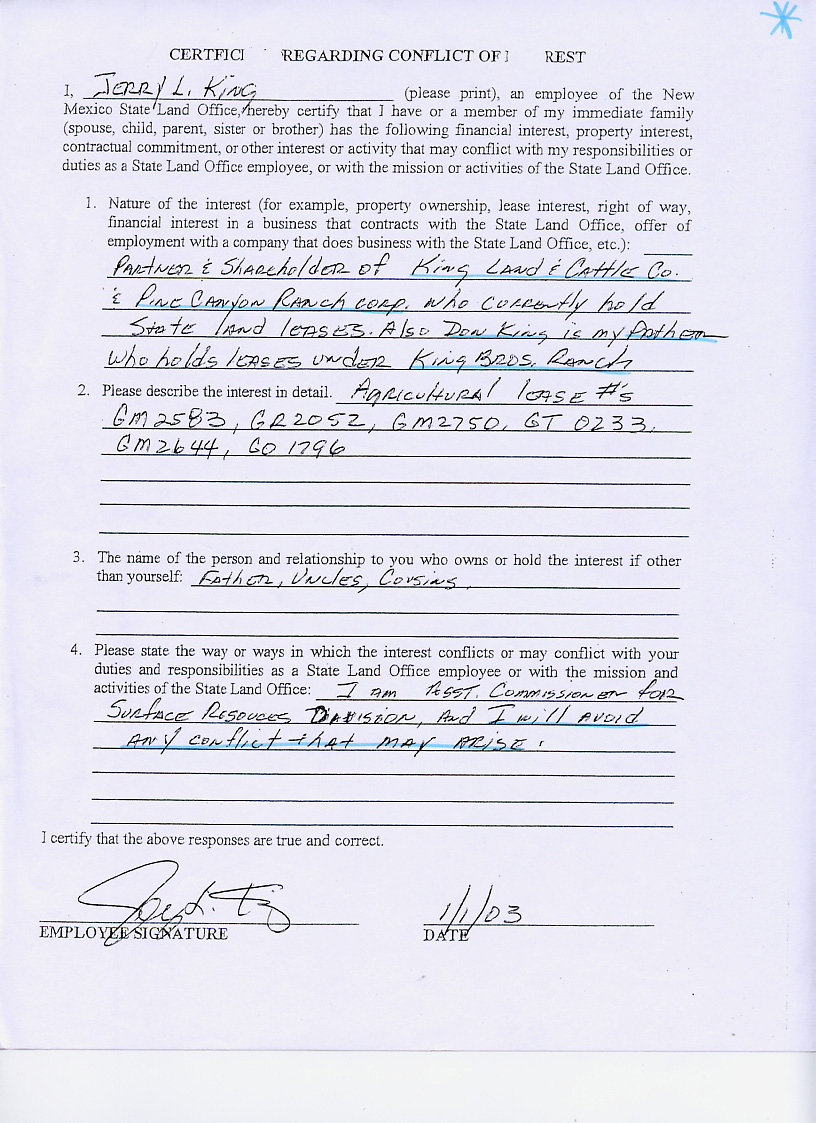 CERTFICI REGARDING CONFLICT OF I REST
I, JERRY L. KING (please print), an employee of the New
Mexico State Land Office, hereby certify that I have or a member of my immediate family
(spouse, child, parent, sister or brother) has the following financial interest, property interest,
contractual commitment, or other interest or activity that may conflict with my responsibilities or
duties as a State Land Office employee, or with the mission or activities of the State Land Office.
1. Nature of the interest (for example, property ownership, lease interest, right of way,
financial interest in a business that contracts with the State Land Office, offer of
employment with a company that does business with the State Land Office, etc.):
Partner & Shareholder of King Land & Cattle Co.
& Pine Canyon Ranch Corp. who currently hold
State land leases. Also Don King is my Father
who holds leases under King Bros. Ranch
2. Please describe the interest in detail. Agricultural lease #'s
GM2583, GR2052, GM2750, GT 0233,
GM2644, GO 1796
3. The name of the person and relationship to you who owns or hold the interest if other
than yourself: Father, Uncles, Cousins
4. Please state the way or ways in which the interest conflicts or may conflict with your
duties and responsibilities as a State Land Office employee or with the mission and
activities of the State Land Office: I am Asst. Commissioner for
Surface Resouces Division, and I will avoid
any conflict that may arise.
I certify that the above responses are true and correct.
1/1/03
EMPLOYEE SIGNATURE DATE